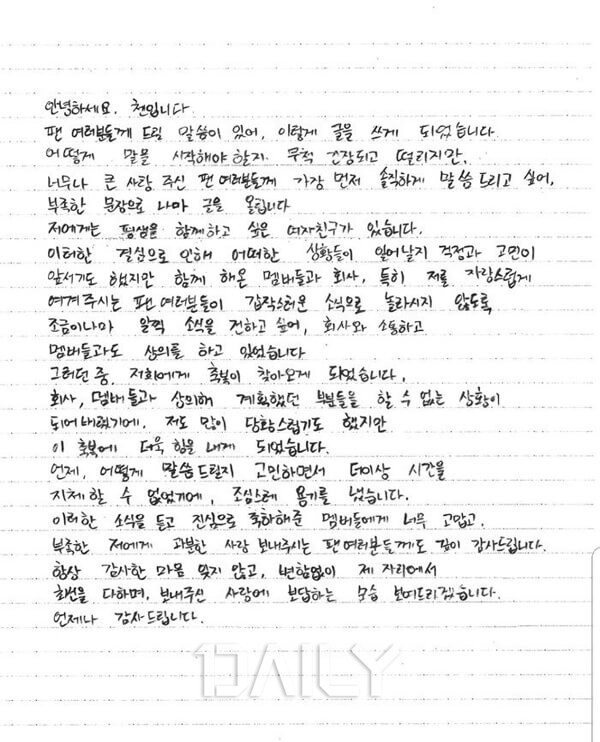 안녕하세요. 첸입니다
팬 여러분들께 드릴 말씀이 있어, 이렇게 글을 쓰게 되었습니다.
어떻게 말을 시작해야 할지 무척 긴장되고 떨리지만,
너무나 큰 사랑 주신 팬 여러분들께 가장 먼저 솔직하게 말씀드리고 싶어,
부족한 문장으로 나마 글을 올립니다
저에게는 평생을 함께하고 싶은 여자친구가 있습니다.
이러한 결심으로 인해 어떠한 상황들이 일어날지 걱정과 고민이
앞서기도 했지만 함께 해온 멤버들과 회사, 특히 저를 자랑스럽게
여겨주시는 팬 여러분들이 갑작스러운 소식으로 놀라시지 않도록
조금이나마 일찍 소식을 전하고 싶어, 회사와 소통하고
멤버들과도 상의를 하고 있었습니다
그러던 중, 저희에게 축복이 찾아오게 되었습니다.
회사, 멤버들과 상의해 계획했던 부분들을 할 수 없는 상황이
되어버렸기에, 저도 많이 당황스럽기도 했지만
이 축복에 더욱 힘을 내게 되었습니다.
언제, 어떻게 말씀드릴지 고민하면서 더이상 시간을
지체할 수 없었기에, 조심스레 용기를 냈습니다.
이러한 소식을 듣고 진심으로 축하해준 멤버들에게 너무 고맙고,
부족한 저에게 과분한 사랑 보내주시는 팬 여러분들께도 깊이 감사드립니다.
항상 감사한 마음 잊지 않고, 변함없이 제 자리에서
최선을 다하며, 보내주신 사랑에 보답하는 모습 보여드리겠습니다.
언제나 감사드립니다.
DAILY